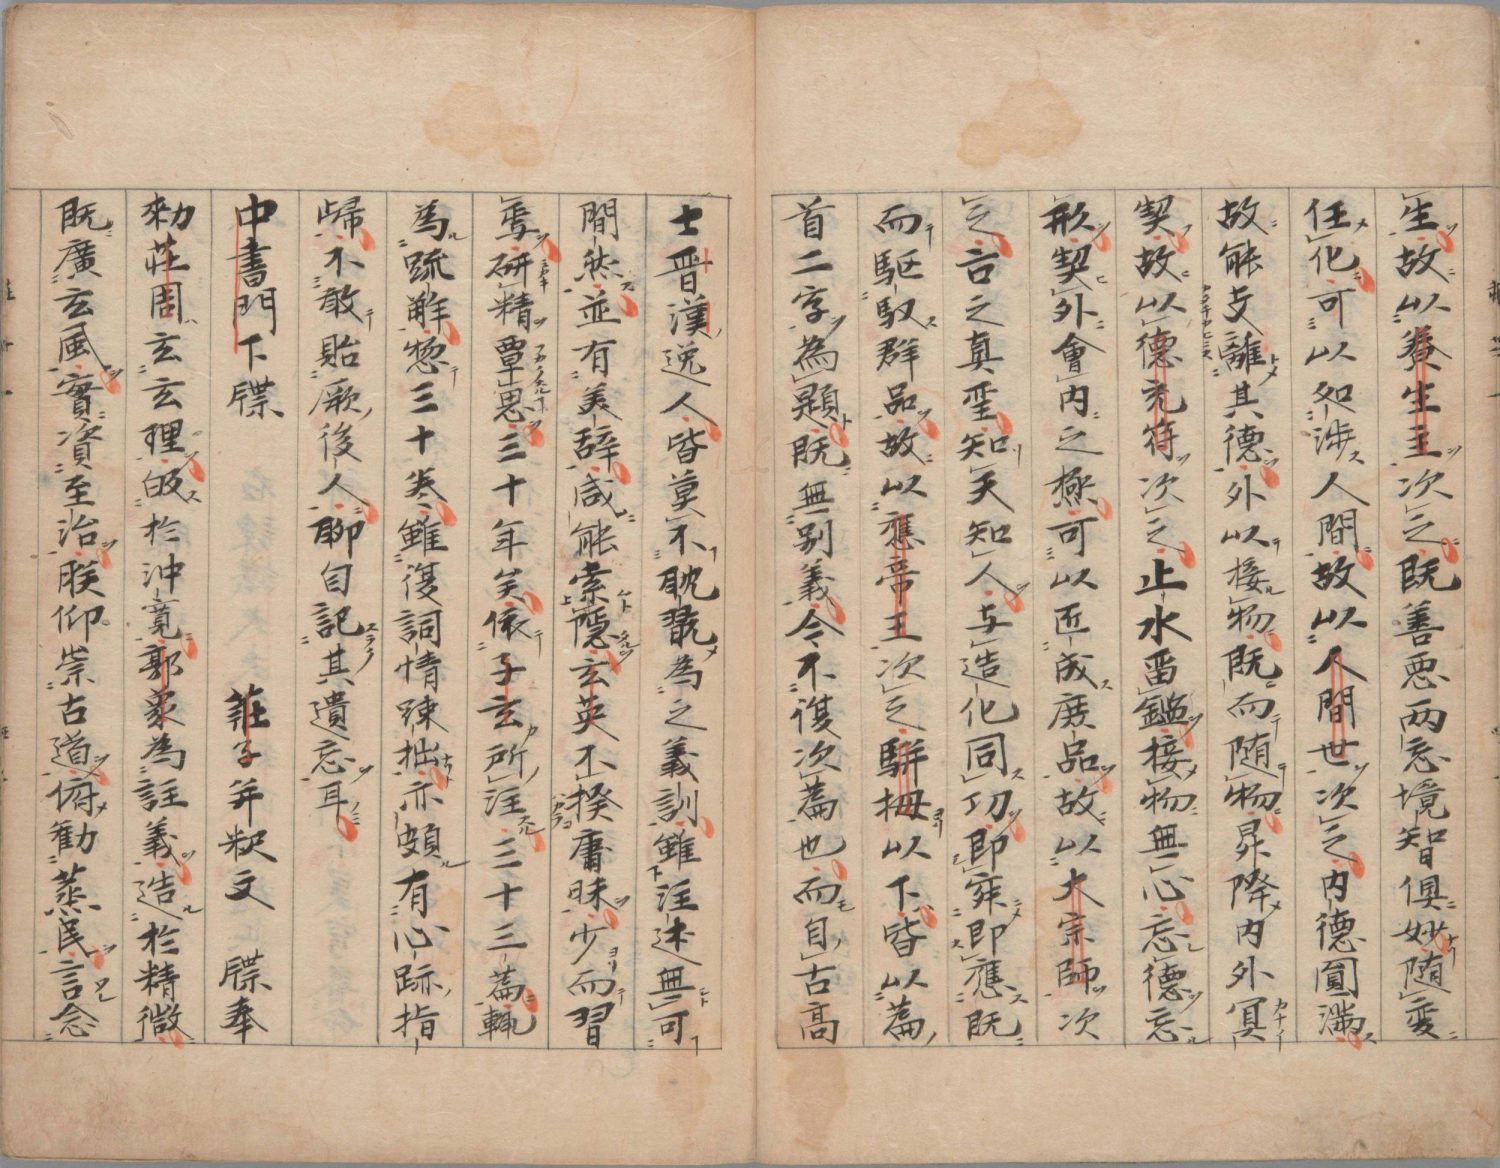 生故以養生主次之既善悪両忘境智俱妙随變
任化可以処渉人間故以人間世次之内德圓滿
故能支離其德外以接物既而随物昇降内外冥
契故以德充符次之止水畄鑑接物無心忘德忘
形契外會内之極可以匠成庶品故以大宗師次
之言之真聖知天知人与造化同功即寂即應既
而駆馭群品故以應帝王次之駢拇以下皆以篇
首二字為題既無别義今不復次篇也而自古高
士晋漢逸人皆莫不耽翫為之義訓雖注述無可
間然並有美辞咸能索隠玄英不揆庸昧少而習
焉研精覃思三十年矣依子玄所注三十三篇輒
為疏解惣三十巻雖復詞情踈拙亦頗有心跡指
歸不敢貽厥後人聊自記其遺忘耳
中書門下牒 荘子并釈文 牒奉
勑荘周玄玄理㱕於沖寛郭象為註義造於精微
既廣玄風實資至治朕仰崇古道俯勸蒸民言念